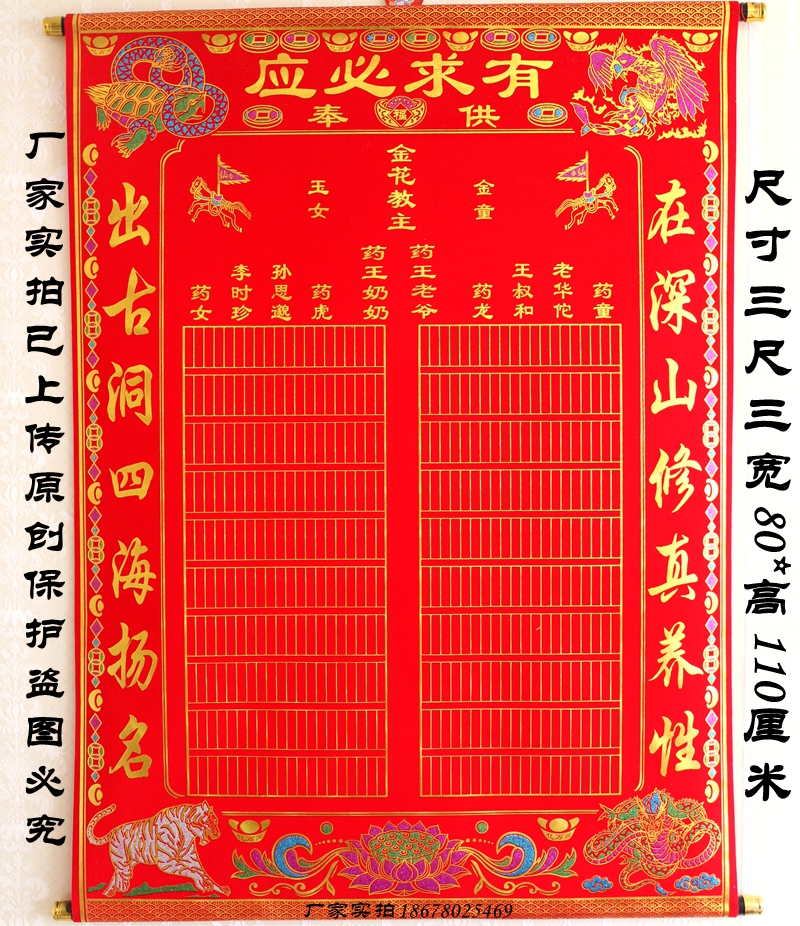 有求必应
供奉
金花教主
金童
玉女
药王老爷
药王奶奶
药童
老华佗
王叔和
药龙
药虎
孙思邈
李时珍
药女
在深山修真养性
出古洞四海扬名
尺寸三尺三宽80*高110厘米
厂家实拍已上传原创保护盗图必究
福
厂家实拍18678025469